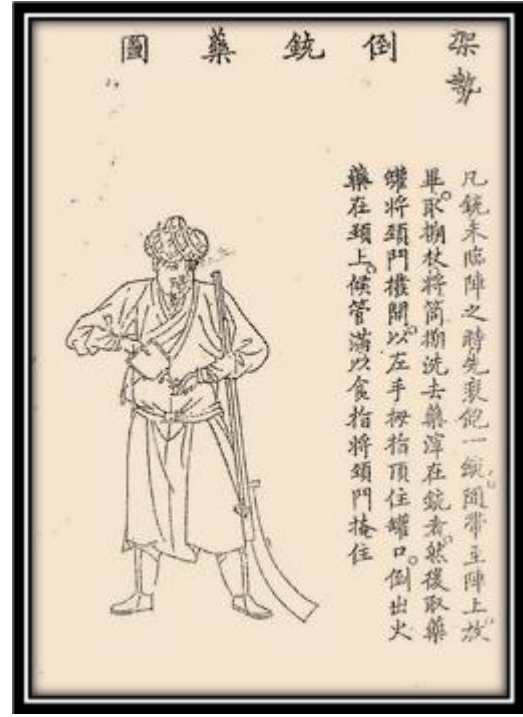 架勢
倒銃藥圖
凡銃未臨陣之時先裝飽一銃閒帶至陣上放
畢取搠杖將筒搠洗去藥滓在銃者然後取藥
罐將頸門撥開以左手拇指頂住罐口倒出火
藥在頸上候管滿以食指將頸門掩住